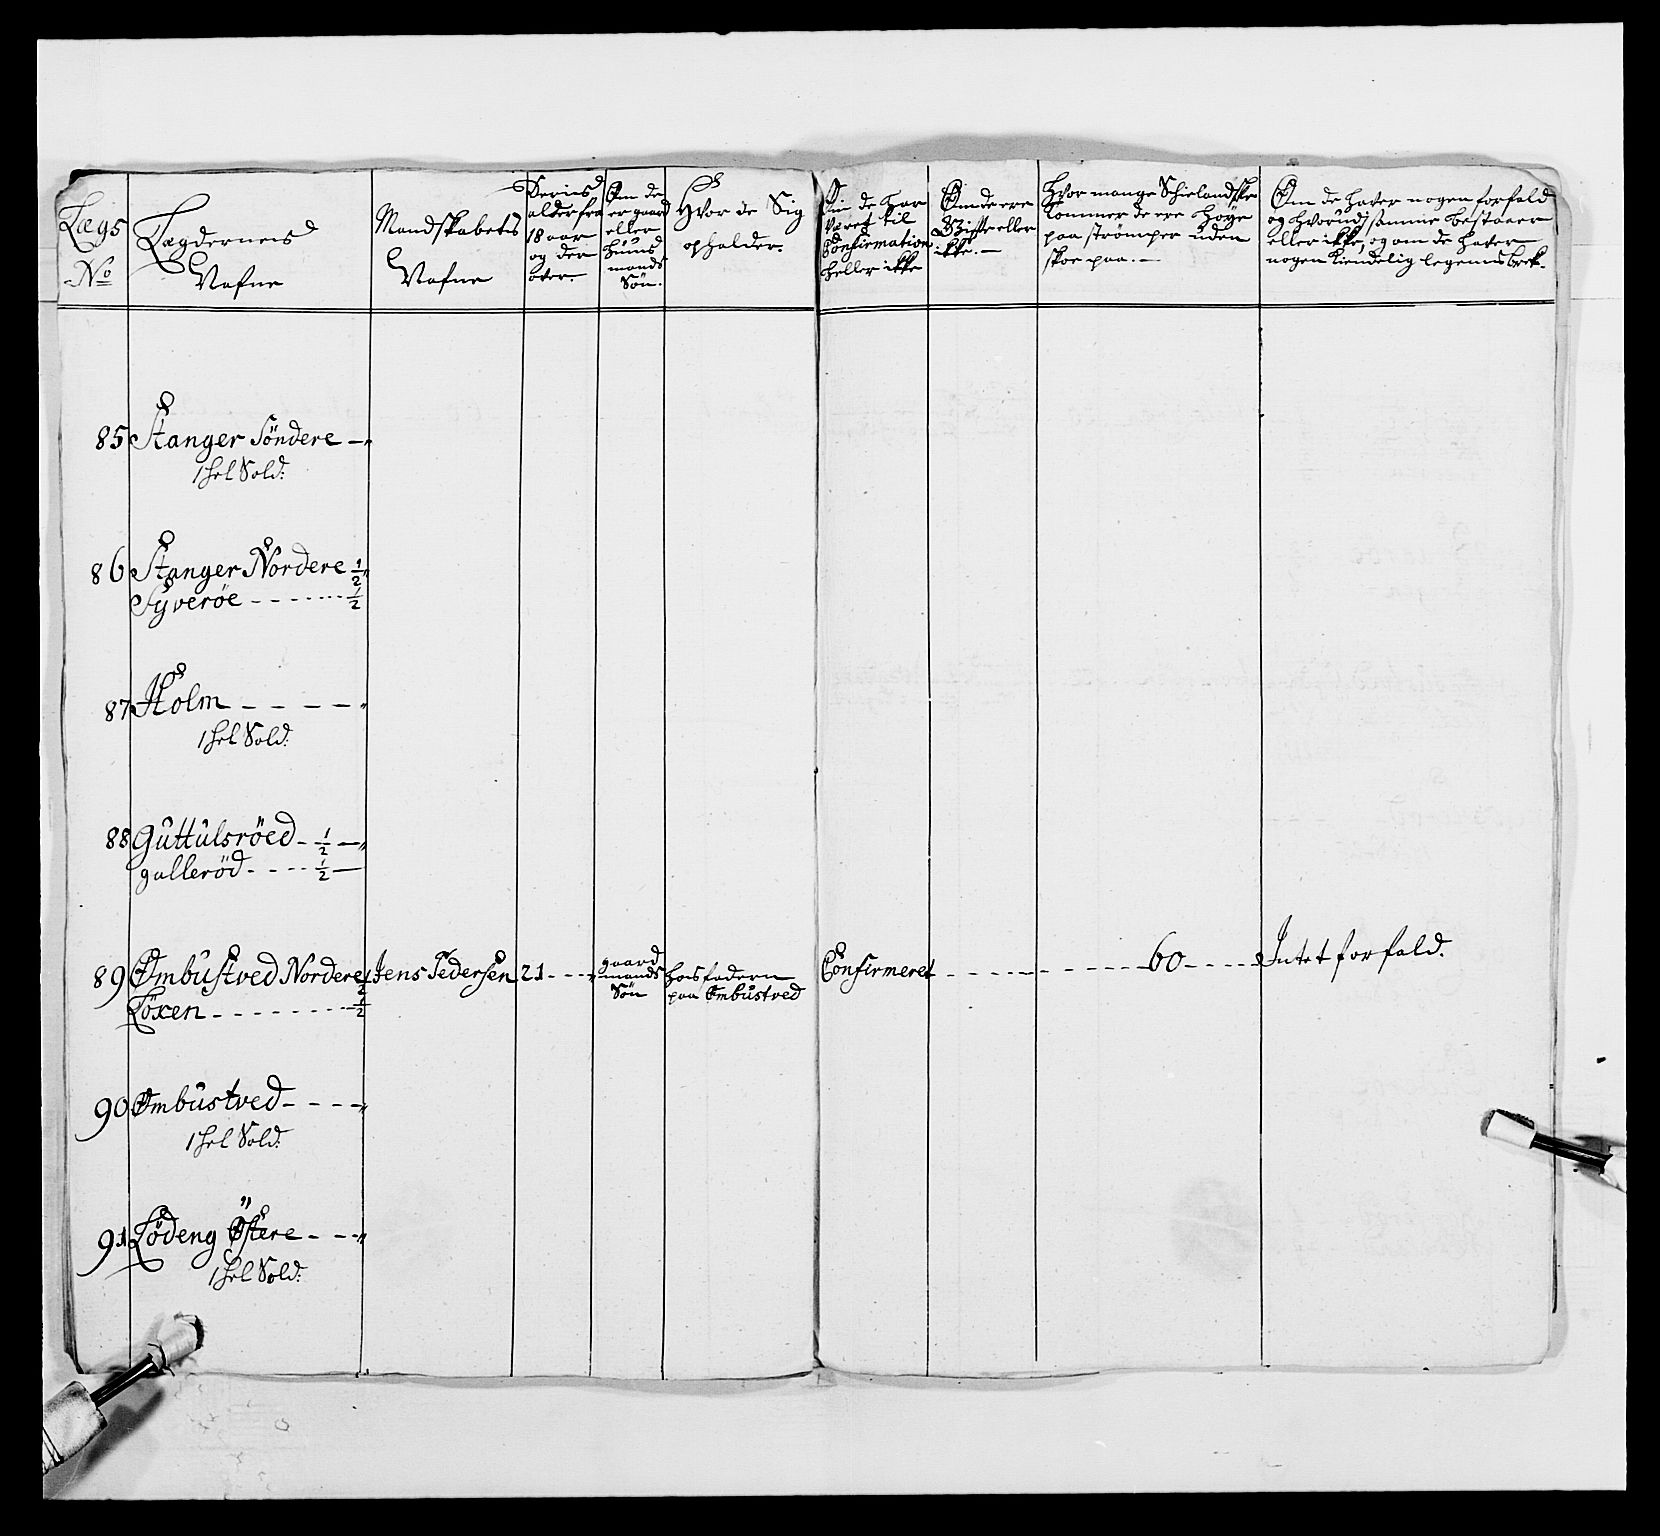 Lægs
No
Lægdernens
Nafne
Mandskabetis
Nafne
Deries
alder fra
18 aar
og der
over.
Om de
er gaard
eller
huus
mands
Søn.
Hvor de Sig
opholder.
Om de har
været til
Confirmation
heller ikke
Om de ere
Giifte eller
ikke. —
Hvor mange Schielandske
tommer de ere høye
paa strømper uden
skoe paa. —
Om de haver nogen forfald
og hvorudj samme bestaaer
eller ikke, og om de haver
nogen kiendelig legems brek.
85 Stanger Söndere —
1 hel Sold:
86 Stanger Nordere 1/2
Syveröe - - - - - - 1/2
87 Holm - - - -
1 hel Sold:
88 Guttulsröed - 1/2 —
galleröd - - - - 1/2 —
89 Ombustved Nordere 1/2 Jens Pedersen 21 - - - gaard mands Søn hos faderen paa Ombustved Confirmeret - - - - - - 60 - - - - Intet forfald.
Löxen - - - - - - - - 1/2
90 Ombustved - - - -
1 hel Sold:
91 Lödeng Östere - - -
1 hel Sold: